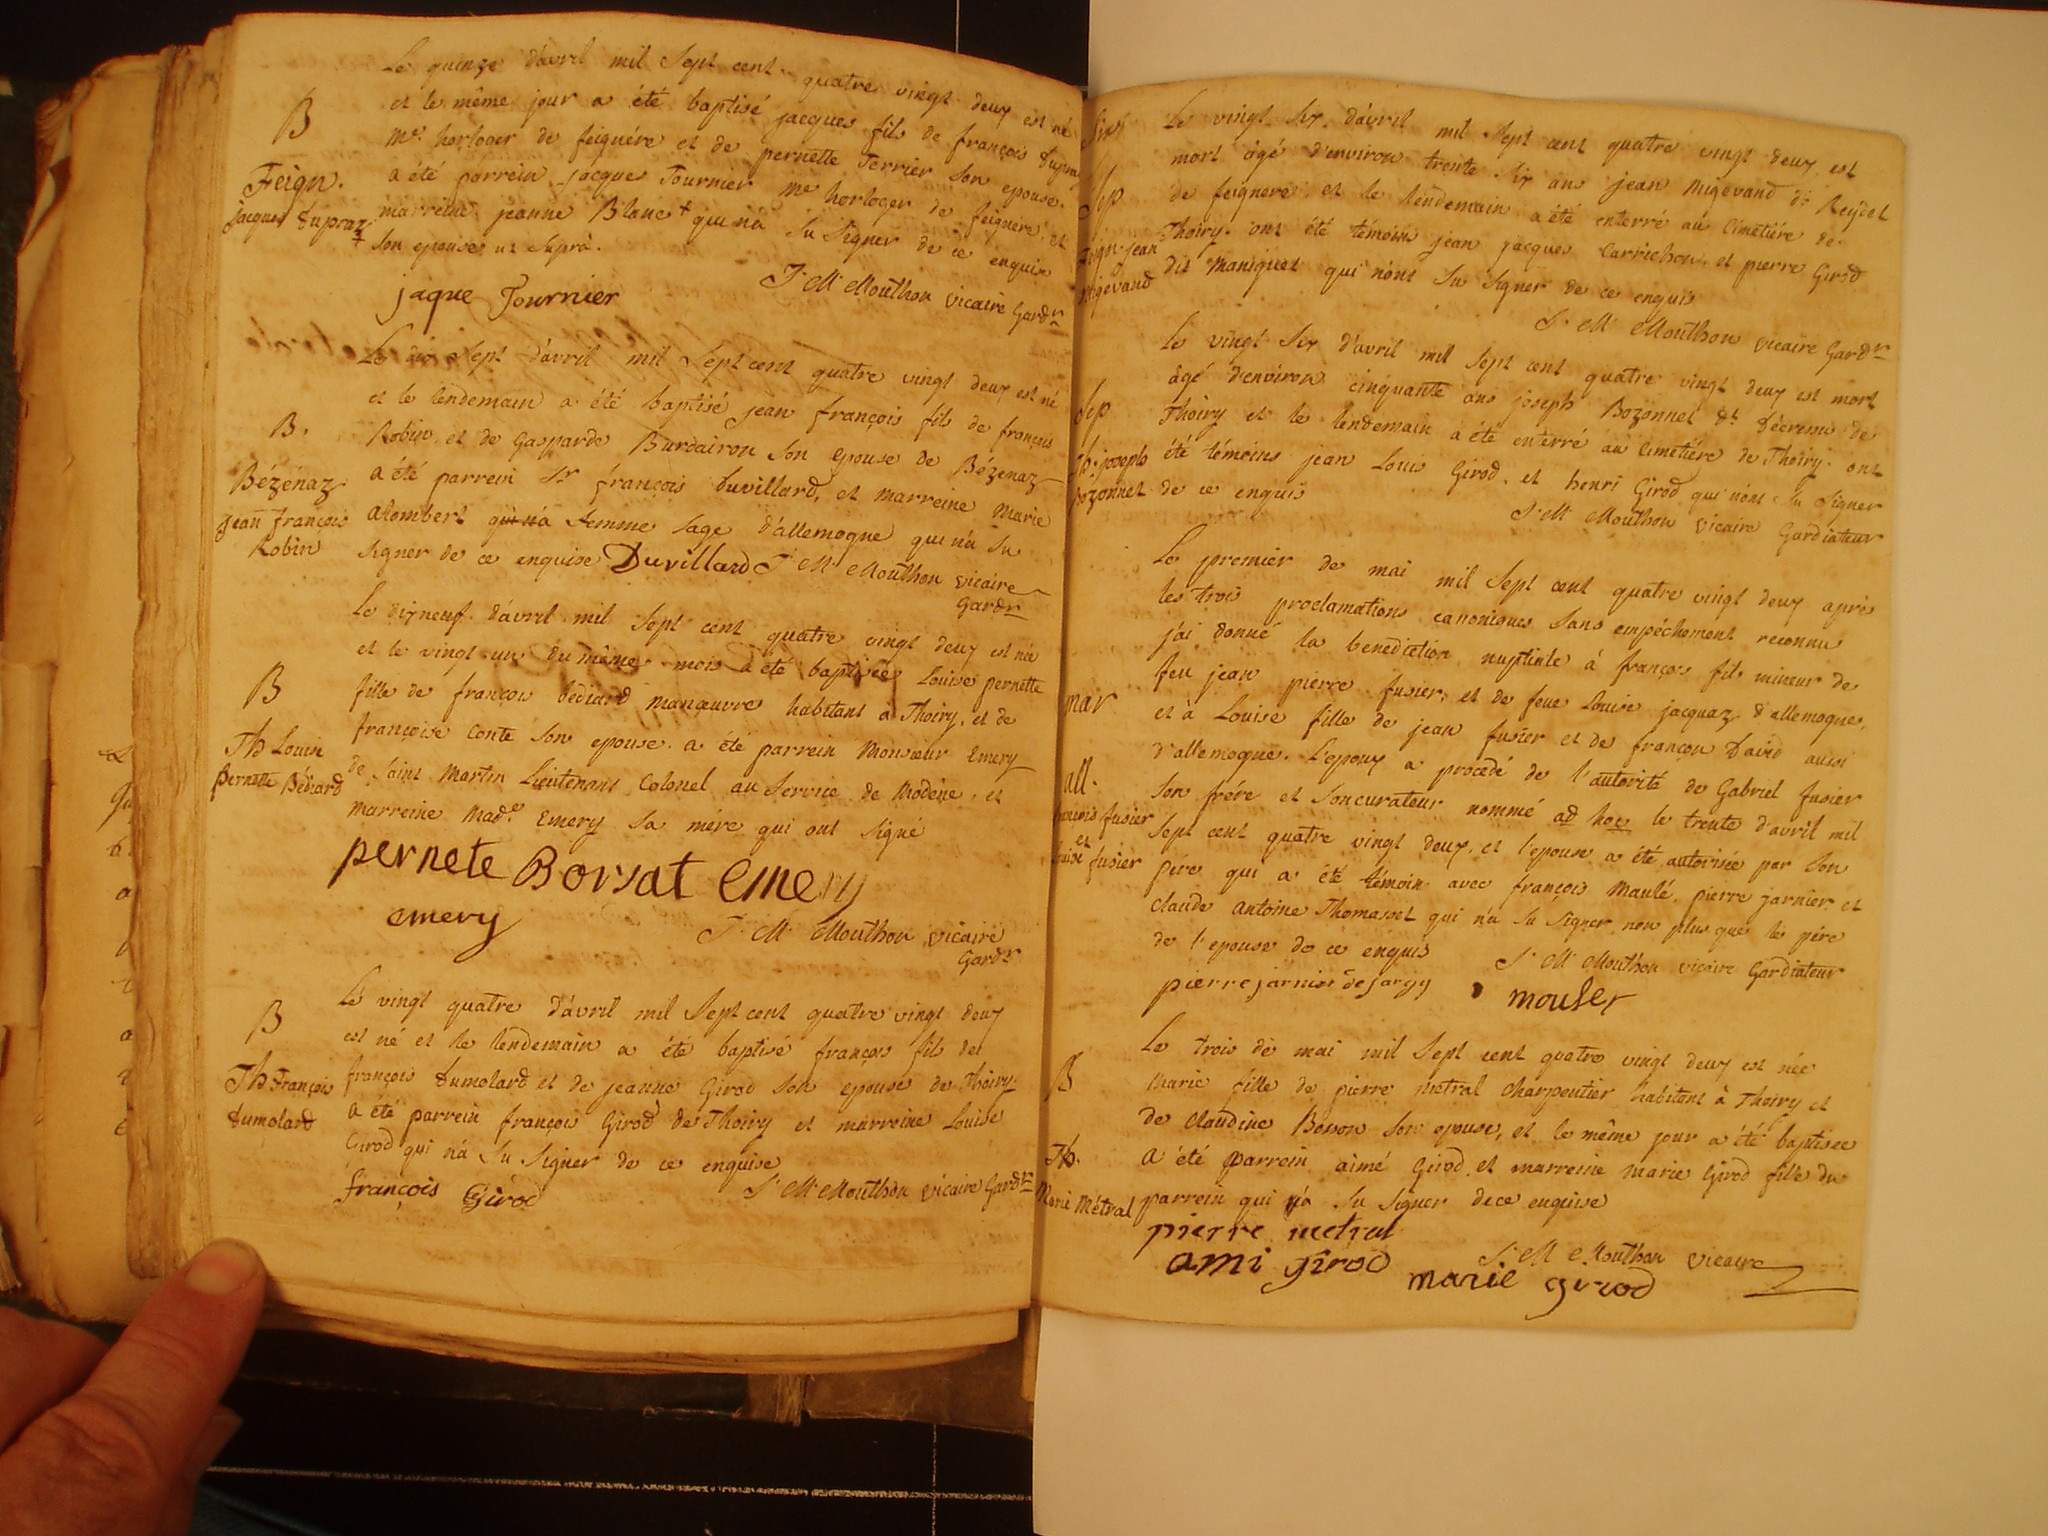 Le quinze d'avril mil Sept cent quatre vingt deux est né
et le même jour a été baptisé jacques fils de françois Dupraz
B
me. horloger de feiguére et de pernette Terrier son epouse.
Feign.
a été parrein jacques Tournier me horloger de feiguére, et
jacques Dupraz
marreine jeanne Blanc + qui n'a Su Signer de ce enquise
+ Son epouse ut Suprà.
J. M. Mouthon vicaire Gardr
jaque Tournier
Le dix Sept d'avril mil Sept cent quatre vingt deux est né
et le lendemain a été baptisé jean françois fils de françois
B.
Robin et de Gasparde Burdairon Son epouse de Bézenaz
Bézénaz
a été parrein Sr françois Duvillard, et marreine Marie
jean françois
Alombert qui n'a femme sage d'allemogne qui n'a Su
Robin
Signer de ce enquise Duvillard J. M. Mouthon vicaire
Gardr
Le dixneuf d'avril mil Sept cent quatre vingt deux est née
et le vingt un du même mois a été baptisée Louise pernette
B
fille de françois bédiard manœuvre habitant à Thoiry, et de
françoise Conte Son epouse. a été parrein Monsieur Emery
Th Louise
de Saint Martin Lieutenant Colonel au Service de Modène, et
Pernette Bédiard
marreine Made. Emery Sa mére qui ont Signé
pernete Borsat Emery
emery
J. M. Mouthon vicaire
Gardr
Le vingt quatre d'avril mil Sept cent quatre vingt deux
B
est né et le lendemain a été baptisé françois fils de
Th François
françois Dumolard et de jeanne Girod Son epouse de Thoiry.
Dumolard
a été parrein françois Girod de Thoiry et marreine Louise
Girod qui n'a Su Signer de ce enquise
J. M. Mouthon vicaire Gardr
françois Girod
Le vingt Six d'avril mil Sept cent quatre vingt deux est
mort âgé d'environ trente Six ans jean Migevand dt Reydet
Sep
de feignere, et le lendemain a été enterré au Cimetiére de
Feign. jean
Thoiry. ont été témoins jean jacques Carrichon, et pierre Girod
Migevand
dit Maniquet qui n'ont Su Signer de ce enquis
J. M. Mouthon vicaire Gardr
Le vingt Six d'avril mil Sept cent quatre vingt deux est mort
Sep
âgé d'environ cinquante ans joseph Bozonnet dt Décrenu de
Thoiry et le lendemain a été enterré au Cimetiére de Thoiry. ont
Th. joseph
été témoins jean Louis Girod, et henri Girod qui n'ont Su Signer
Bozonnet
de ce enquis
J. M. Mouthon vicaire Gardiateur
Le premier de mai mil Sept cent quatre vingt deux aprés
les trois proclamations canoniques Sans empéchement reconnu
j'ai donné la benediction nuptiale à françois fils mineur de
mar
feu jean pierre fusier, et de feue Louise jacquaz d'allemogne,
et à Louise fille de jean fusier et de françon David aussi
all.
d'allemogne. L'epoux a procedé de l'autorité de Gabriel fusier
françois fusier
Son frére et Son curateur nommé ad hoc le trente d'avril mil
et
Sept cent quatre vingt deux, et l'epouse a été autorisée par Son
Louise fusier
Pére qui a été témoin avec françois Maulé, pierre jarnier, et
Claude Antoine Thomasset qui n'a Su Signer non plus que le pére
de l'epouse de ce enquis
J. M. Mouthon vicaire Gardiateur
pierre jarnier de Sargy
mousler
Le trois de mai mil Sept cent quatre vingt deux est née
B
Marie fille de pierre metral charpentier habitant à Thoiry et
de Claudine Besson Son epouse, et le même jour a été baptisée
Th.
a été parrein aimé Girod, et marreine Marie Girod fille du
Marie Métral
parrein qui n'a Su Signer de ce enquise
pierre metral
J. M. Mouthon vicaire
ami girod
marie girod